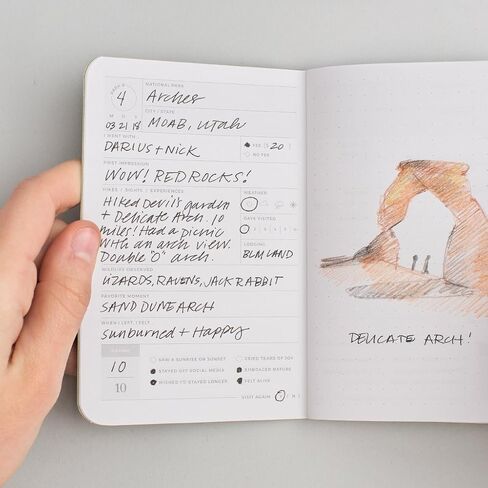 NATIONAL PARK
4 Arches
CITY / STATE
M D Y
03 21 18 MOAB, Utah
I WENT WITH
DARIUS + NICK
FEE $ 20
NO FEE
FIRST IMPRESSION
WOW! RED ROCKS!
HIKES / SIGHTS / EXPERIENCES
WEATHER
Hiked Devil's garden
+ Delicate Arch. 10
miles! Had a picnic
with an arch view.
Double "O" arch.
DAYS VISITED
LODGING
BLM LAND
WILDLIFE OBSERVED
LIZARDS, RAVENS, JACK RABBIT
FAVORITE MOMENT
SAND DUNE ARCH
WHEN I LEFT, I FELT
sunburned + Happy
10
10
SAW A SUNRISE OR SUNSET
CRIED TEARS OF JOY
STAYED OFF SOCIAL MEDIA
EMBRACED NATURE
WISHED I'D STAYED LONGER
FELT ALIVE
VISIT AGAIN
DELICATE ARCH!